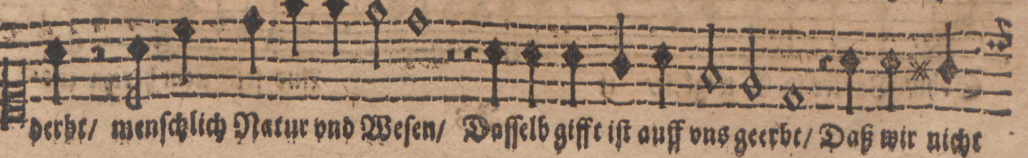 derbt/ menschlich Natur vnd Wesen/ Dasselb gifft ist auff vns geerbt/ Daß wir nicht